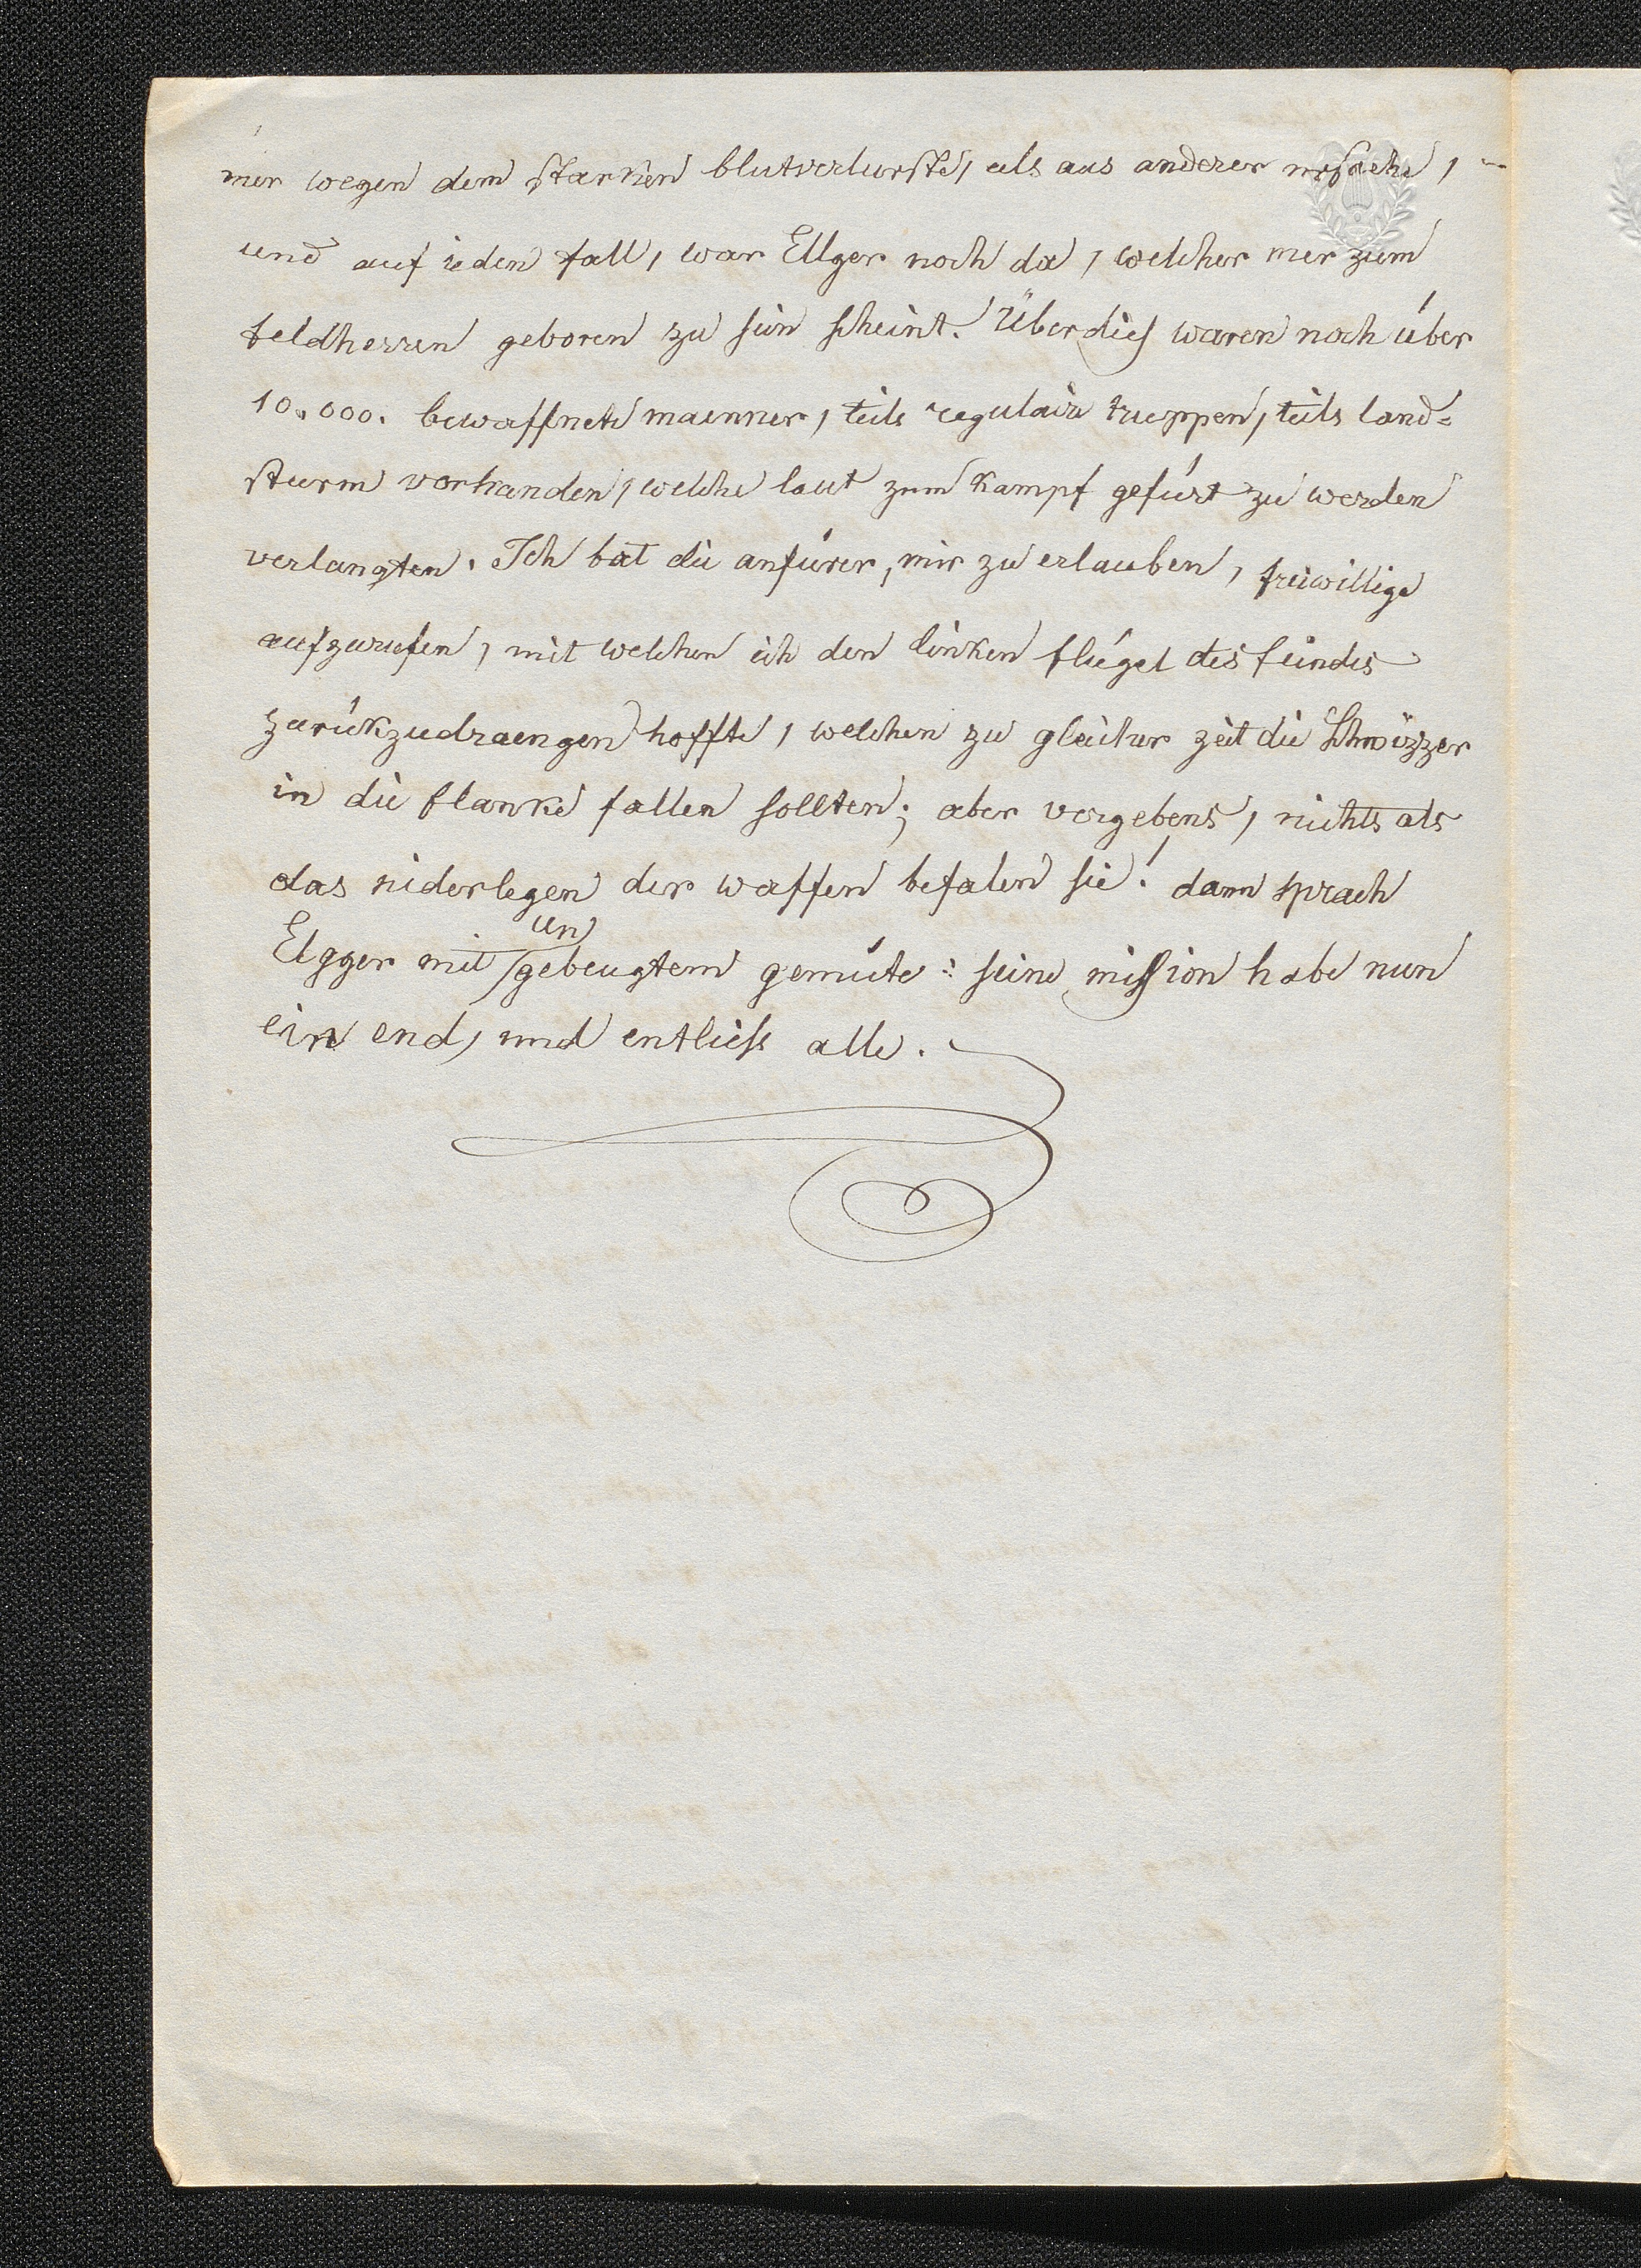 mer wegen dem starken blutverlurste, als aus anderer ursache,
und auf ieden fall, war Ellger noch da, welcher mer zum
feldherren geboren zu sein scheint. Überdies waren noch über
10.000. bewaffnete maenner, teils regulaire truppen, teils land=
sturm vorhanden, welche laut zum kampf gefürt zu werden
verlangten. Ich bat die anfürer, mir zu erlauben, freiwillige
aufzurufen, mit welchen ich den linken flügel des feindes
zurükzudraengen hoffte, welchen zu gleicher zeit die Schwizzer
in die flanke fallen sollten; aber vergebens, nichts als
das niderlegen der waffen befalen sie! dann sprach
Elgger mit ungebeugtem gemüte: seine mission habe nun
ein end, und entliess alle.